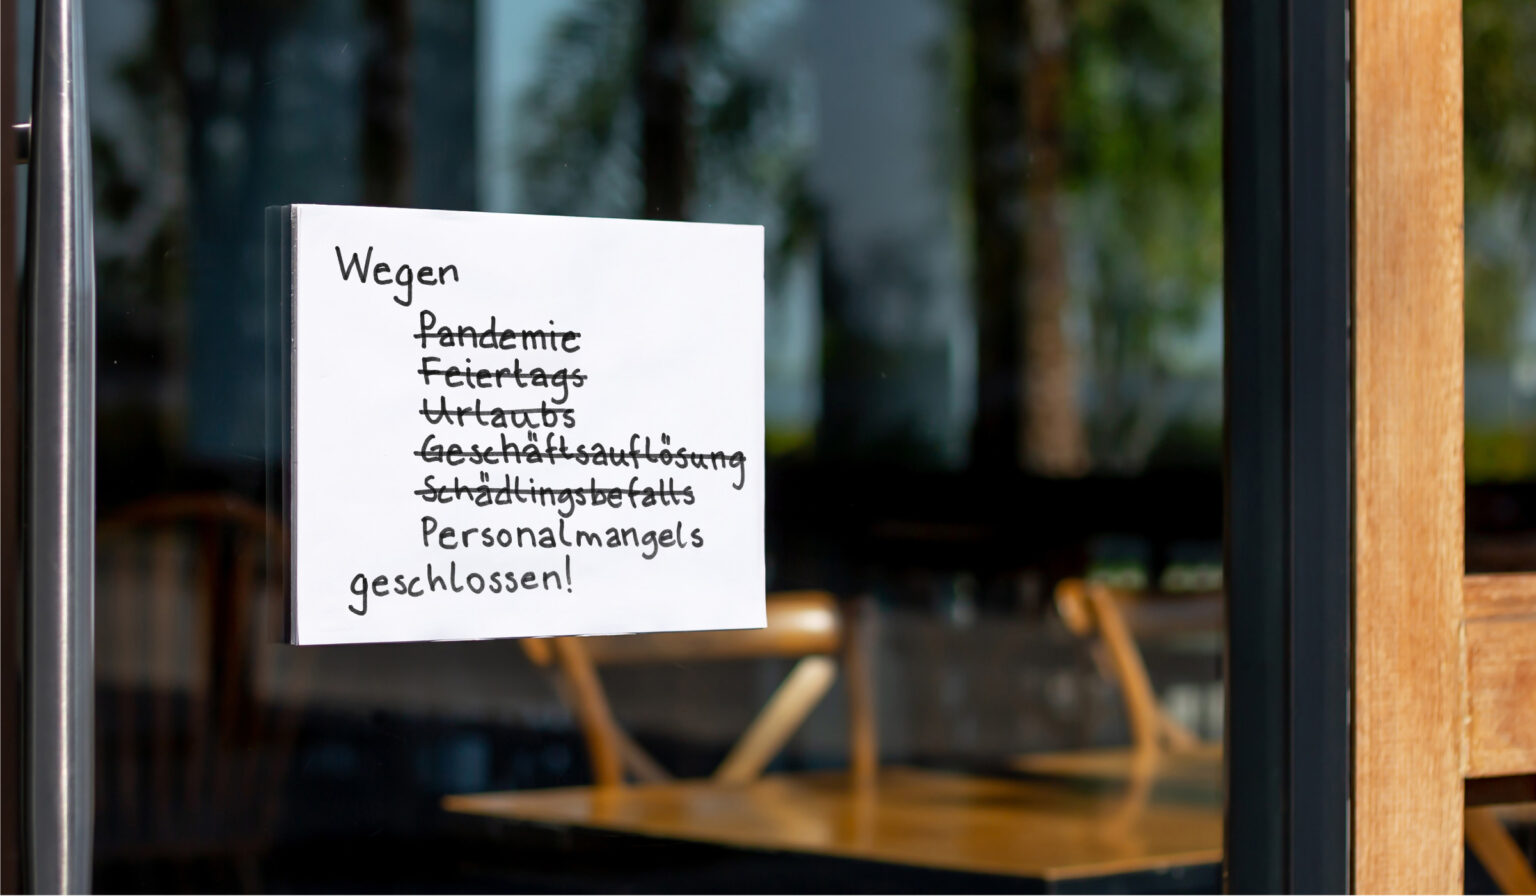 Wegen
Pandemie
Feiertags
Urlaubs
Geschäftsauflösung
Schädlingsbefalls
Personalmangels
geschlossen!